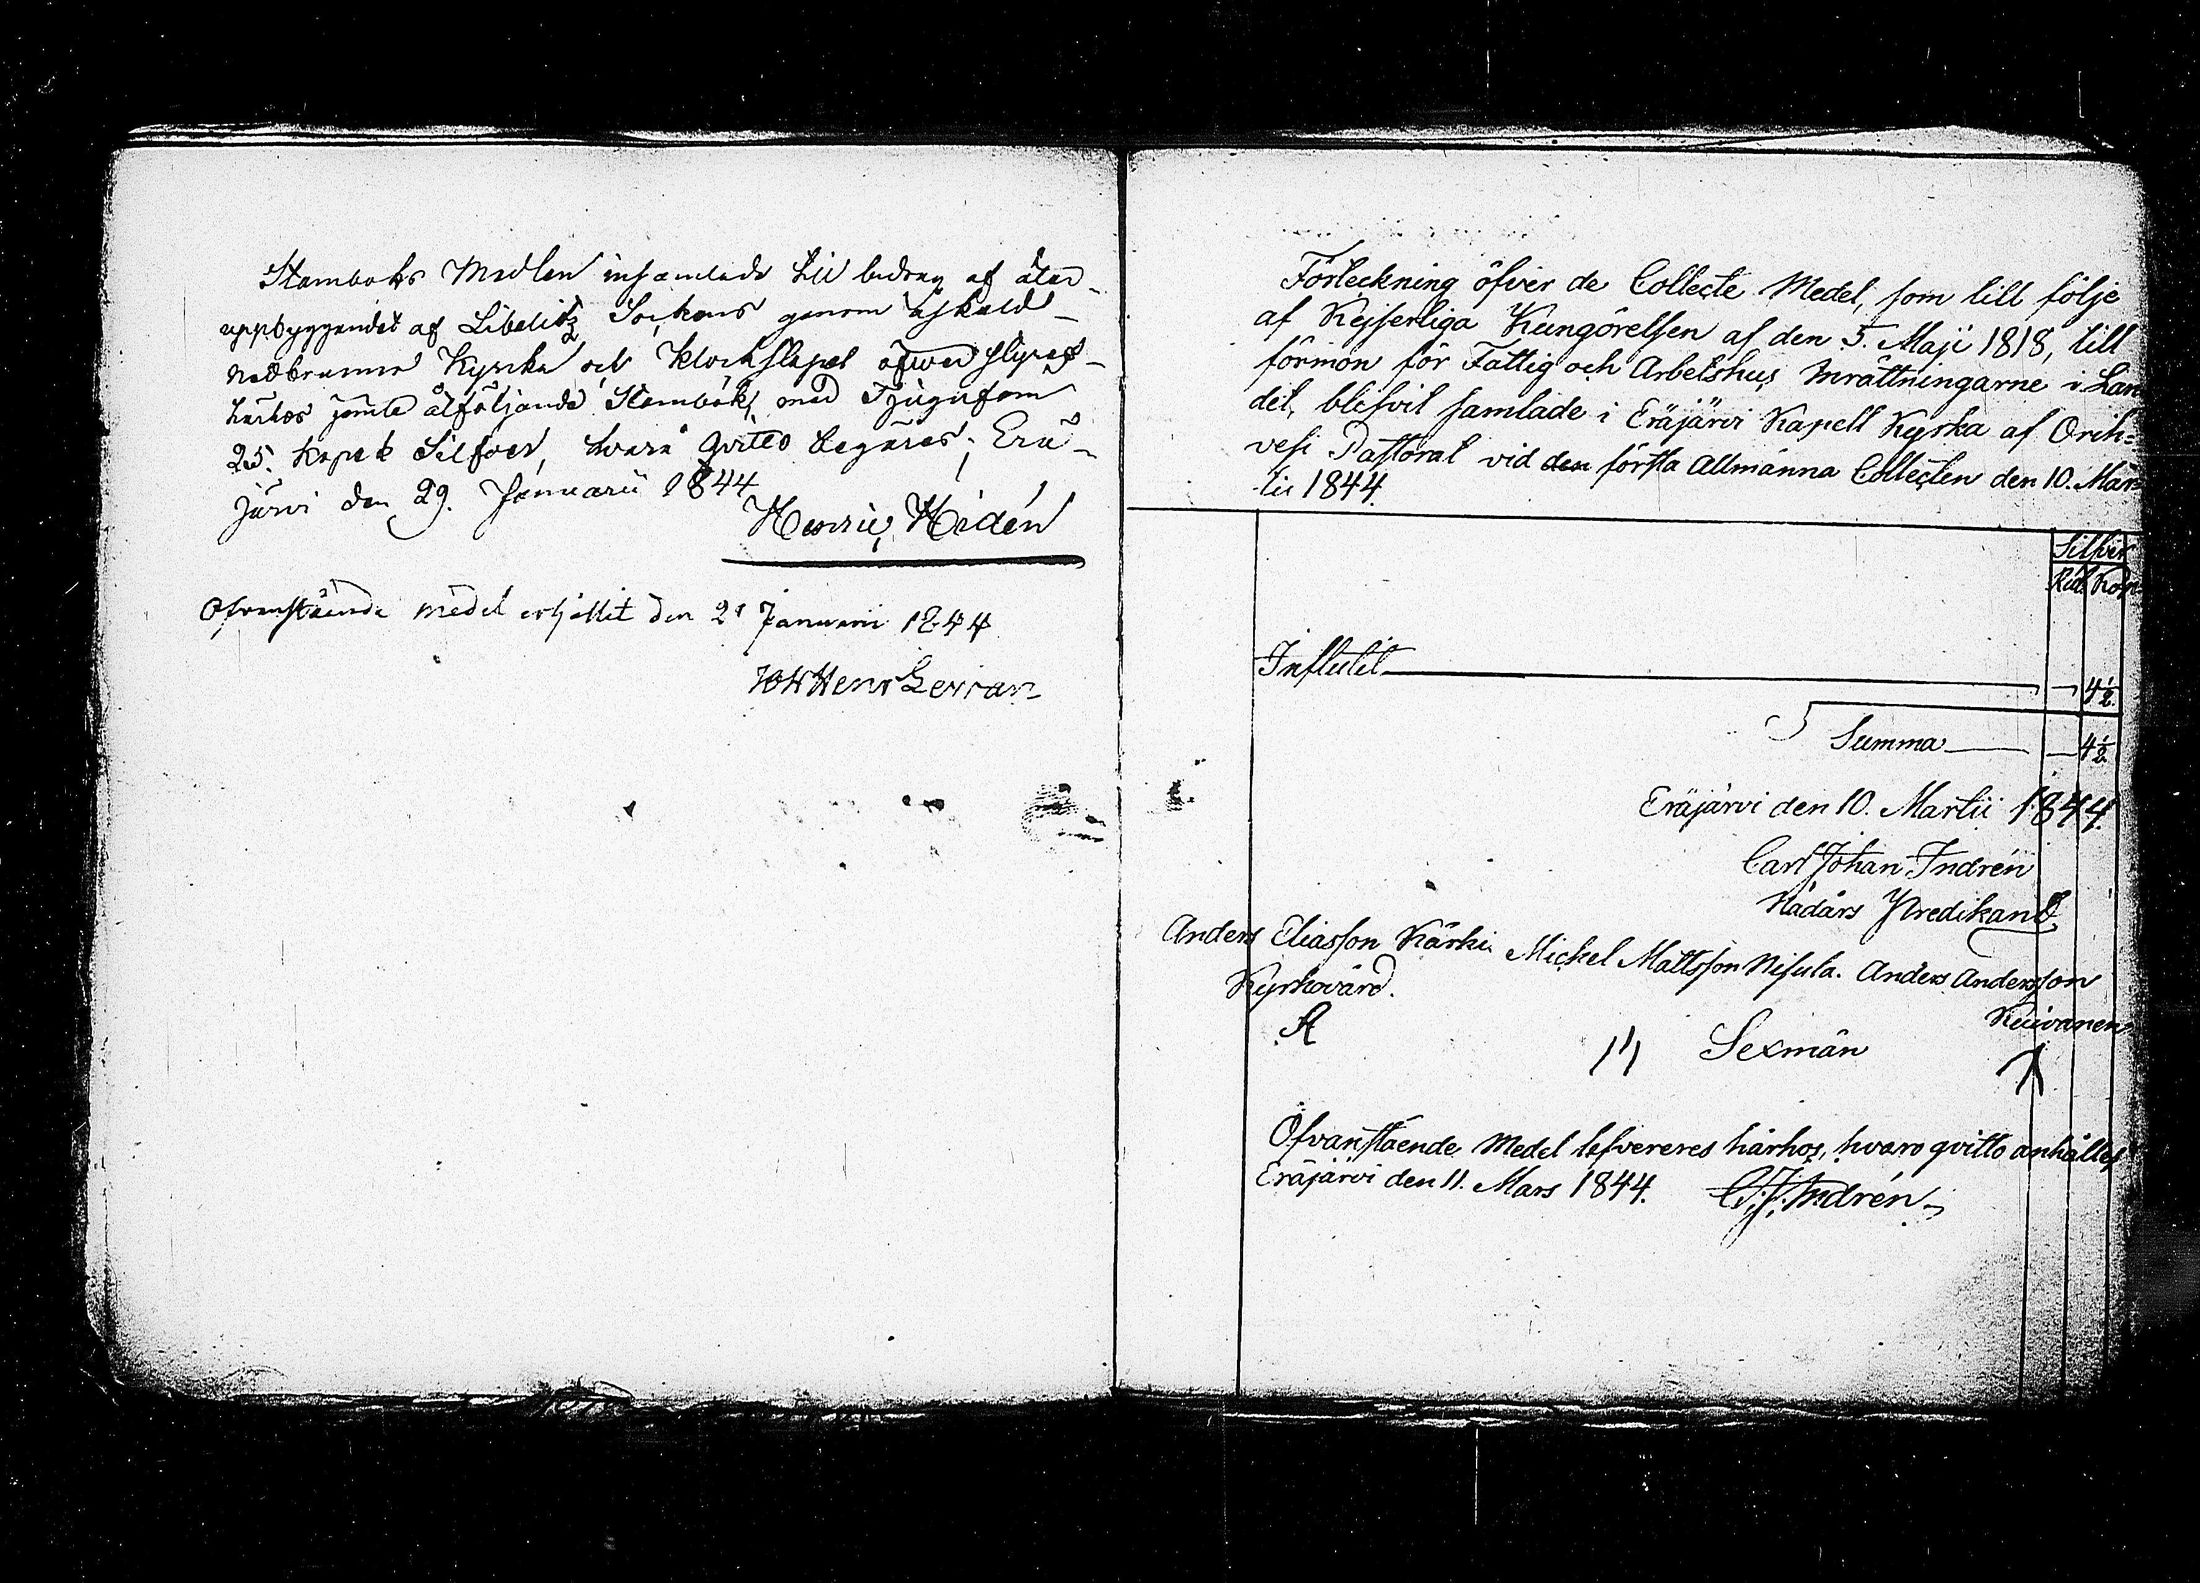 Stamboks Medlen insamlade till bidrag af åter-
uppbyggandet af Libelitz Sockens genom åskeld
nedbrunne Kyrcka och Klockstapel öfwer
härhos jemte åtföljande Stambok, med Tjugufem
25. Kopek Silfver, hvarå qvitto begäres; Erä-
järvi den 29. Januarii 1844
Henric Hidén
Ofvanstående medel erhållit den Januarii 1844
Förteckning öfver de Collecte Medel, som till följe
af Kejserliga Kungörelsen af den 5. Maji 1818, till
förmon för Fattig och Arbetshus Inrättningarne i Lan
det, blifvit samlade i Eräjärvi Kapell Kyrka af Orih=
vesi Pastorat vid den första Allmänna Collecten den 10. Mar=
tii 1844.
Silfver
Rub. Kop.
Influtit — 4½
Summa — 4½
Eräjärvi den 10. Martii 1844.
Carl Johan Indrén
Nådårs Predikant
Anders Eliasson Kärki Mickel Mattsson Nisula. Anders Andersson
Kyrkovärd. Kuivanen
A Sexmän
Ofvanstående Medel lefvereres härhos, hvaro qvitto anhålles
Eräjärvi den 11. Mars 1844. C.J. Indrén